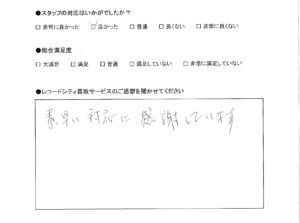 ●スタッフの対応はいかがでしたか？
□ 非常に良かった ☑ 良かった □ 普通 □ 良くない □ 非常に良くない
●総合満足度
□ 大満足 □ 満足 □ 普通 □ 満足していない □ 非常に満足していない
●レコードシティ買取サービスのご感想を聞かせてください
素早い対応に感謝しています